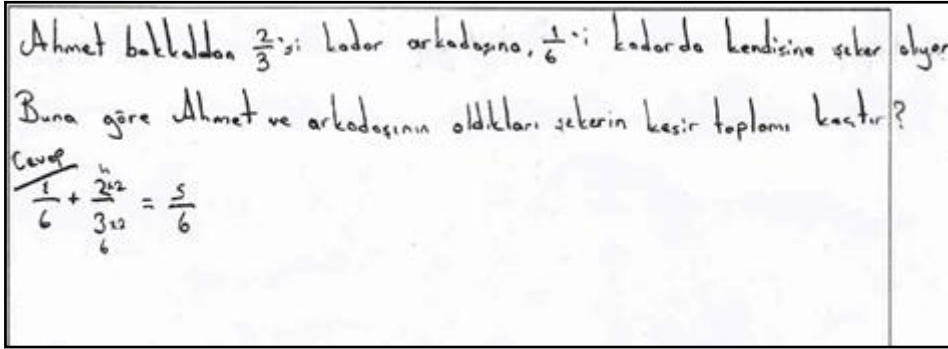 Ahmet bakkaldan 2/3'si kadar arkadaşına, 1/6'i kadarda kendisine şeker alıyor
Buna göre Ahmet ve arkadaşının aldıkları şekerin kesir toplamı kaçtır?
Cevap
1/6 + 2x2/3x2 = 5/6
4
6